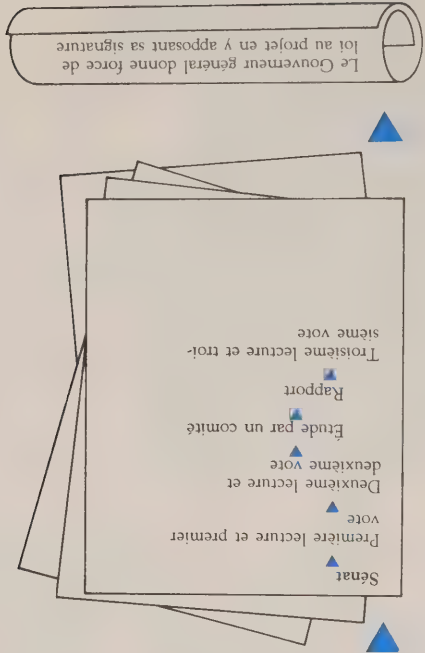 Sénat
Première lecture et premier
vote
Deuxième lecture et
deuxième vote
Étude par un comité
Rapport
Troisième lecture et troi-
sième vote
Le Gouverneur général donne force de
loi au projet en y apposant sa signature